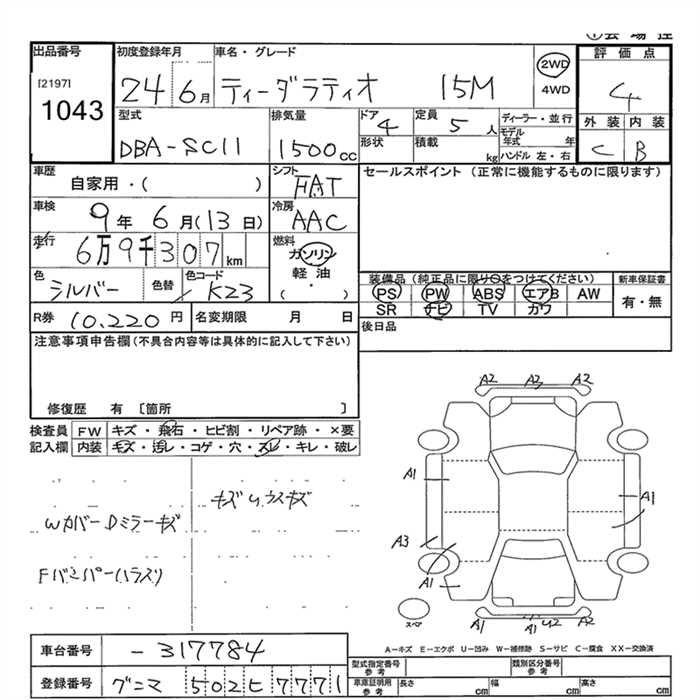 出品番号
[2197]
1043
初度登録年月
24 6月
車名・グレード
ティーダラティオ 15M
2WD
4WD
評価点
4
外装 内装
C B
型式
DBA-SC11
排気量
1500cc
ドア
4
定員
5人
ディーラー・並行
形状
積載
kg
モデル年式 年
ハンドル 左・右
車歴
自家用・( )
シフト
FAT
セールスポイント(正常に機能するものに限ります)
車検
9年 6月(13日)
冷房
AAC
走行
6万9千307km
燃料
ガソリン
軽油
( ・ )
色
シルバー
色替
色コード
K23
装備品(純正品に限り○をつけてください)
新車保証書
PS PW ABS エアB AW
有・無
SR ナビ TV カワ
R券 10,220円
名変期限 月 日
後日品
注意事項申告欄(不具合内容等は具体的に記入して下さい)
修復歴 有 [箇所 ]
検査員 FW キズ・飛石・ヒビ割・リペア跡・×要
記入欄 内装 キズ・汚レ・コゲ・穴・スレ・キレ・破レ
キズU.ウスキズ
WカバーDミラーキズ
Fバンパーハラスリ
A2 A3 A2
A1
A1
A3
A1
A1 A1 U2 A2
スペア
A-キズ E-エクボ U-凹み W-補修跡 S-サビ C-腐食 XX-交換済
車台番号 -317784
登録番号 グンマ 502 ヒ 7771
型式指定番号
参考
類別区分番号
参考
車庫証明用
参考
長さ cm 幅 cm 高さ cm